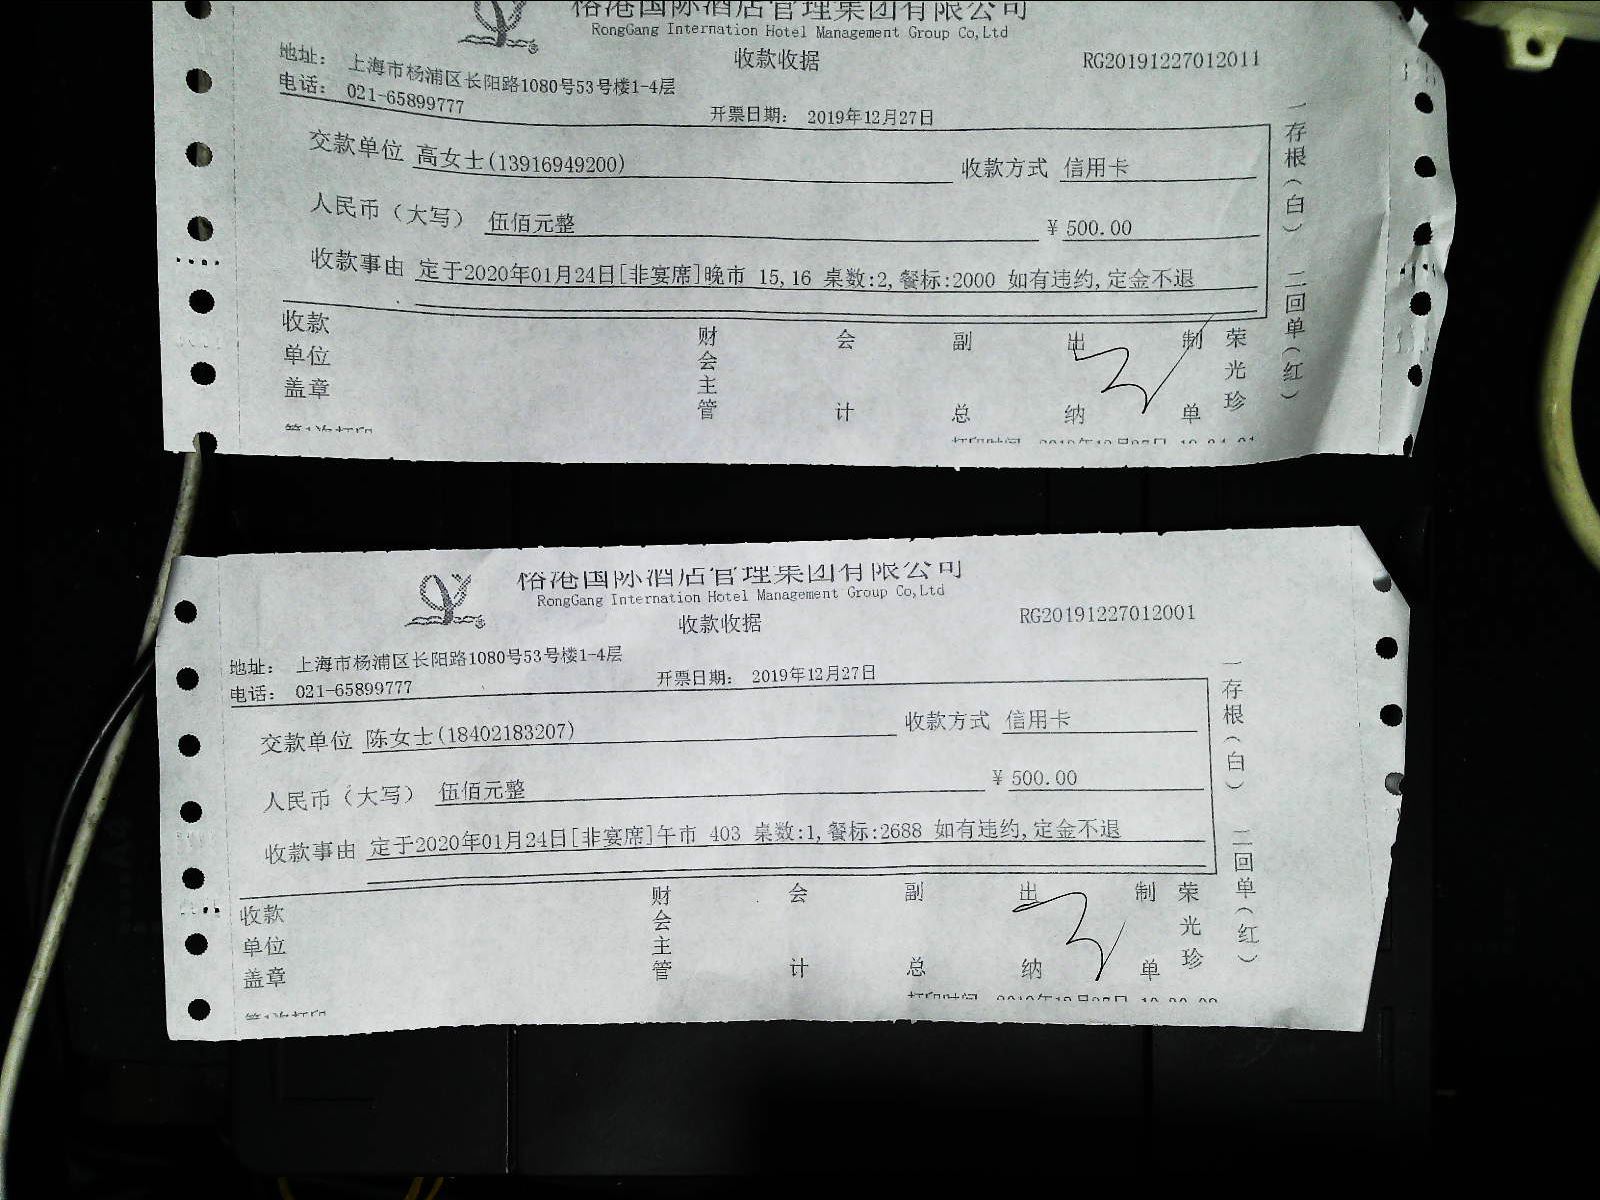 国际酒店管理集团有限公司
RongGang Internation Hotel Management Group Co,Ltd
收款收据
RG20191227012011
地址： 上海市杨浦区长阳路1080号53号楼1-4层
电话： 021-65899777
开票日期： 2019年12月27日
交款单位 高女士(13916949200) 收款方式 信用卡
人民币（大写） 伍佰元整 ￥500.00
收款事由 定于2020年01月24日[非宴席]晚市 15,16 桌数:2,餐标:2000 如有违约,定金不退
收款单位盖章 财会主管 会计 副总 出纳 制单 荣光珍
一存根（白） 二回单（红）
第1次打印
打印时间 2019年12月27日
港国际酒店管理集团有限公司
RongGang Internation Hotel Management Group Co,Ltd
收款收据
RG20191227012001
地址： 上海市杨浦区长阳路1080号53号楼1-4层
电话： 021-65899777
开票日期： 2019年12月27日
交款单位 陈女士(18402183207) 收款方式 信用卡
人民币（大写） 伍佰元整 ￥500.00
收款事由 定于2020年01月24日[非宴席]午市 403 桌数:1,餐标:2688 如有违约,定金不退
收款单位盖章 财会主管 会计 副总 出纳 制单 荣光珍
一存根（白） 二回单（红）
第1次打印
打印时间 2019年12月27日